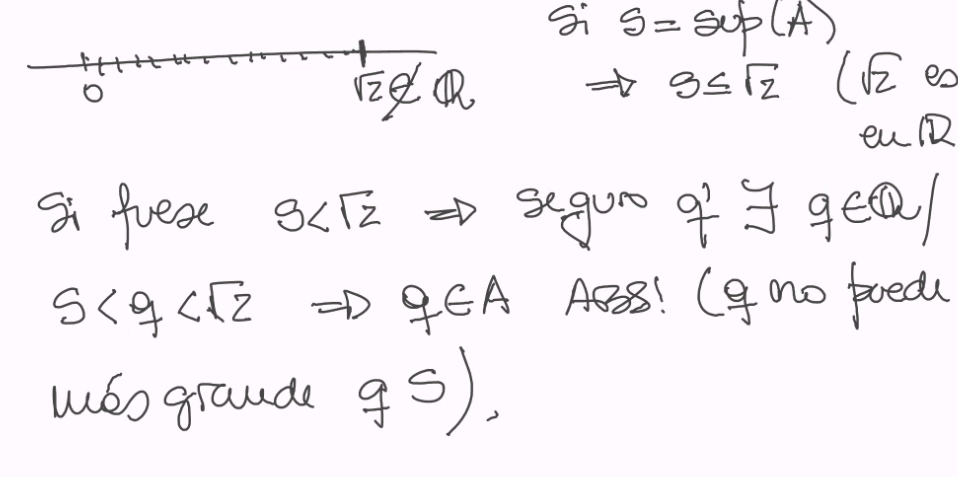 Si S = sup(A)
0
√2 ∉ ℚ
⇒ S ≤ √2 (√2 es
en ℝ
Si fuese S < √2 ⇒ seguro q' ∃ q ∈ ℚ /
S < q < √2 ⇒ q ∈ A ABS! (q no puede
más grande q S).